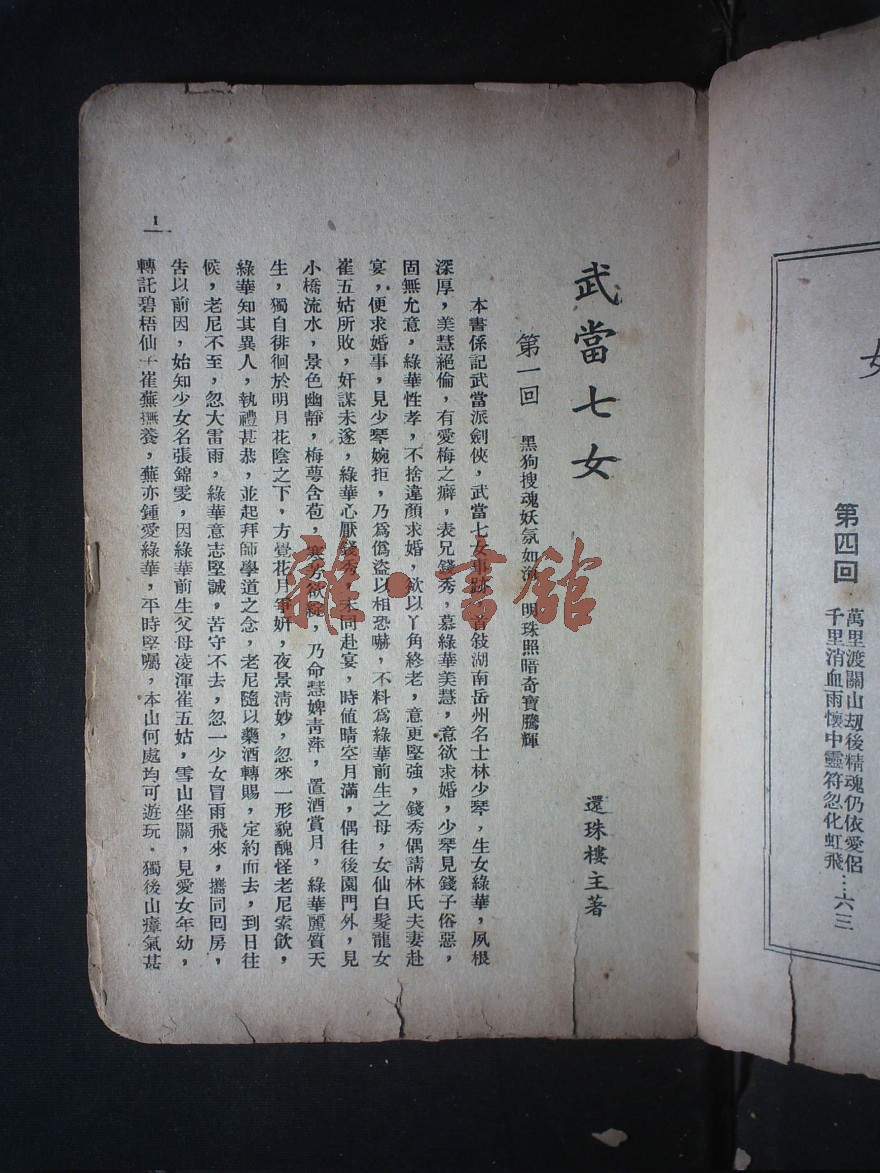 女
第四回
萬里渡關山刼後精魂仍依愛侶
千里消血雨懷中靈符忽化虹飛…六三
武當七女
還珠樓主著
第一回 黑狗搜魂妖氛如海 明珠照暗奇寶騰輝
本書係記武當派劍俠，武當七女事跡，首敍湖南岳州名士林少琴，生女綠華，夙根
深厚，美慧絕倫，有愛梅之癖，表兄錢秀，慕綠華美慧，意欲求婚，少琴見錢子俗惡，
固無允意，綠華性孝，不捨違顏求婚，欲以丫角終老，意更堅強，錢秀偶請林氏夫妻赴
宴，便求婚事，見少琴婉拒，乃爲僞盜以相恐嚇，不料爲綠華前生之母，女仙白髮龍女
崔五姑所敗，奸謀未遂，綠華心厭錢秀，未同赴宴，時値晴空月滿，偶往後園門外，見
小橋流水，景色幽靜，梅萼含苞，寒芳欲綻，乃命慧婢靑萍，置酒賞月，綠華麗質天
生，獨自徘徊於明月花陰之下，方覺花月爭妍，夜景淸妙，忽來一形貌醜怪老尼索飮，
綠華知其異人，執禮甚恭，並起拜師學道之念，老尼隨以藥酒轉賜，定約而去，到日往
候，老尼不至，忽大雷雨，綠華意志堅誠，苦守不去，忽一少女冒雨飛來，攜同囘房，
告以前因，始知少女名張錦雯，因綠華前生父母凌渾崔五姑，雪山坐關，見愛女年幼，
轉託碧梧仙子崔蕪撫養，蕪亦鍾愛綠華，平時堅囑，本山何處均可遊玩，獨後山瘴氣甚
1
雜·書館